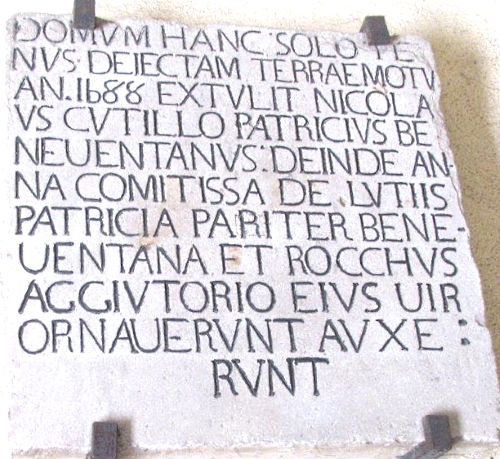 DOMVM HANC SOLO TE
NVS DEIECTAM TERRAEMOTV
AN. 1688 EXTVLIT NICOLA
VS CVTILLO PATRICIVS BE
NEUENTANVS: DEINDE AN-
NA COMITISSA DE LVTIIS
PATRICIA PARITER BENE-
UENTANA ET ROCCHVS
AGGIVTORIO EIVS UIR
ORNAUERVNT AVXE:
RVNT